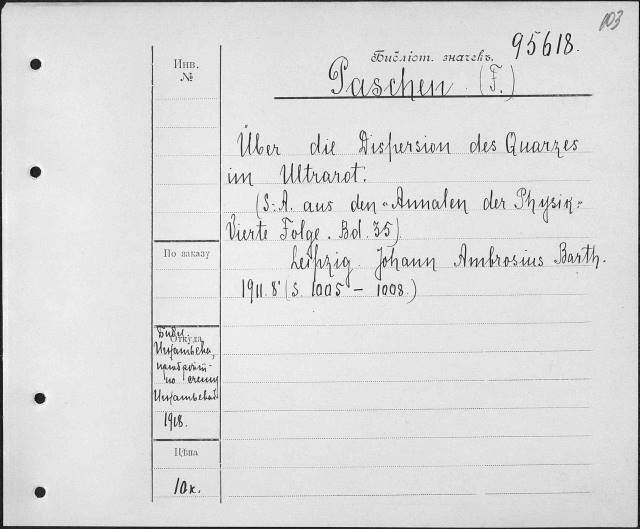 103
Библіот. значекъ. 95618.
Инв.
№
Paschen (F.)
Über die Dispersion des Quarzes
im Ultrarot.
(S.-A. aus den „Annalen der Physik“
Vierte Folge. Bd. 35)
По заказу
Leipzig. Johann Ambrosius Barth.
1911. 8° (S. 1005 – 1008.)
Откуда
Библ.
Игнатьева,
по счету
Игнатьевой
1918.
Цѣна
10к.